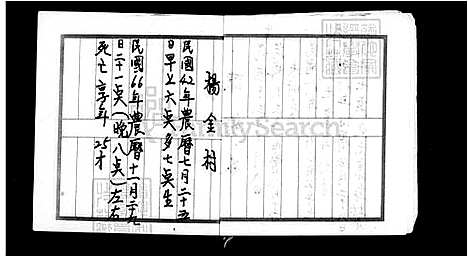 楊金村
民國42年農曆七月二十五
日早上六点多七点生
民國66年農曆十一月二十九
日二十一点(晚八点)左右
死亡享年 25才
FamilySearch